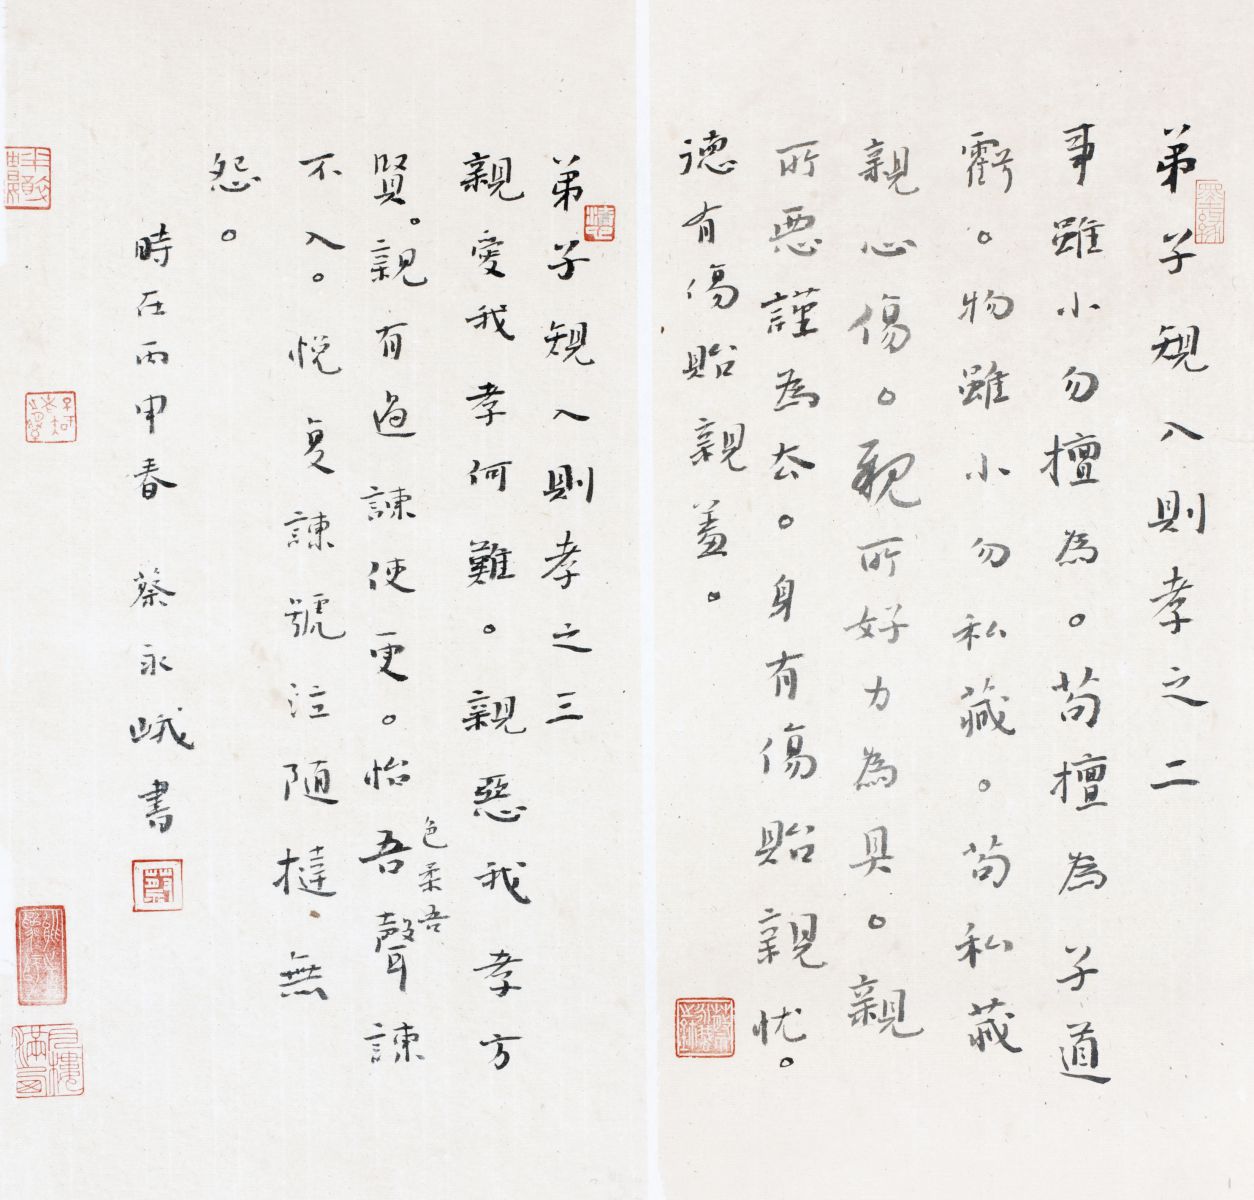 弟子規入則孝之二
事雖小勿擅為。苟擅為子道
虧。物雖小勿私藏。苟私藏
親心傷。親所好力為具。親
所悪謹為去。身有傷貽親忧。
德有傷貽親羞。
弟子規入則孝之三
親愛我孝何難。親惡我孝方
賢。親有過諫使更。怡吾色柔吾聲諫
不入。悅复諫號泣随撻無
怨。
時在丙申春 蔡永峨書